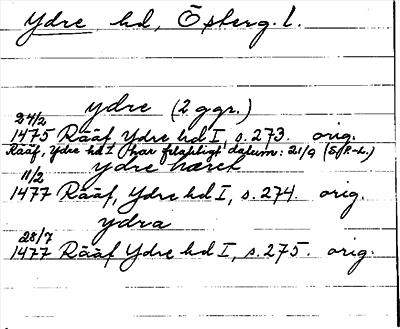 Ydre hd, Östergl.
ydre (2 ggr.)
24/2
1475 Rääf Ydre hd I, s. 273. orig.
Rääf, Ydre hd I har felaktigt datum: 21/9 (S/P.-L.)
ydre hæret
11/2
1477 Rääf, Ydre hd I, s. 274. orig.
ydra
28/7
1477 Rääf Ydre hd I, s. 275. orig.